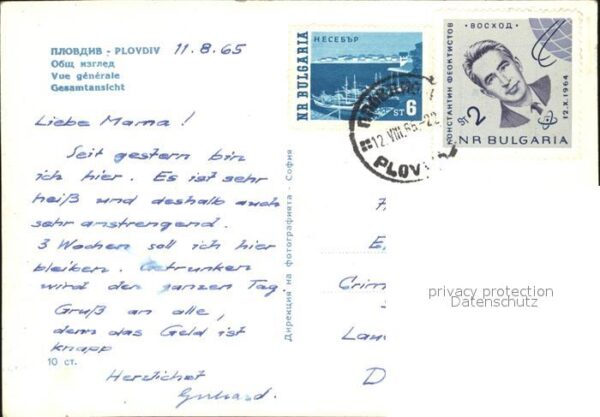 ПЛОВДИВ - PLOVDIV 11.8.65
Общ изглед
Vue générale
Gesamtansicht
Liebe Mama!
Seit gestern bin
ich hier. Es ist sehr
heiß und deshalb auch
sehr anstrengend.
3 Wochen soll ich hier
bleiben. Getrunken
wird den ganzen Tag.
Gruß an alle,
denn das Geld ist
knapp
10 ст.
Herzlichst
Gerhard.
Дирекция на фотографията - София
НЕСЕБЪР
NR BULGARIA
ST 6
ВОСХОД
КОНСТАНТИН ФЕОКТИСТОВ
12.X.1964
ST 2
NR BULGARIA
12.VIII.65-22
PLOV
Crim
Lan
D
privacy protection
Datenschutz